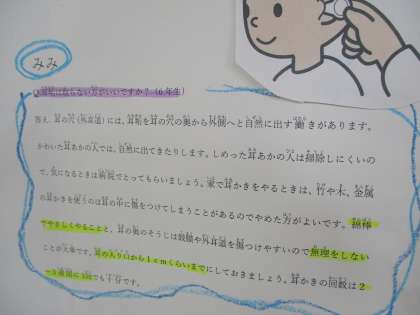 みみ
耳垢は取らない方がいいですか？（6年生）
答え、耳の穴（外耳道）には、耳垢を耳の穴の奥から外側へと自然に出す働きがあります。
かわいた耳あかの人では、自然に出てきたりします。しめった耳あかの人は掃除しにくいの
で、気になるときは病院でとってもらいましょう。家で耳かきをやるときは、竹や木、金属
の耳かきを使うのは耳の中に傷をつけてしまうことがあるのでやめた方がよいです。綿棒
でやさしくやること。耳の奥のそうじは鼓膜や外耳道を傷つけやすいので無理をしない
ことが大事です。耳の入り口から1cmくらいまでにしておきましょう。耳かきの回数は2
～3週間に1回でも十分です。